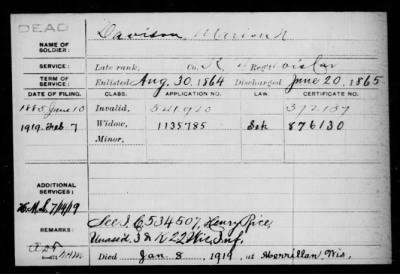 DEAD
NAME OF SOLDIER: Davison,
SERVICE: Late rank, Co. K, Reg't
TERM OF SERVICE: Enlisted Aug. 30, 1864 Discharged June 20, 1865
DATE OF FILING. CLASS. APPLICATION NO. CERTIFICATE NO.
1885 June 10 Invalid,
1919. Feb. 7 Widow, 1135785 876130
Minor,
ADDITIONAL SERVICES:
7/19/19
REMARKS: See I. C. 534507, Henry Rice,
Unassd. 3 & K 22 Wis. Inf.
Died Jan. 8, 1919, at Merrillan Wis,